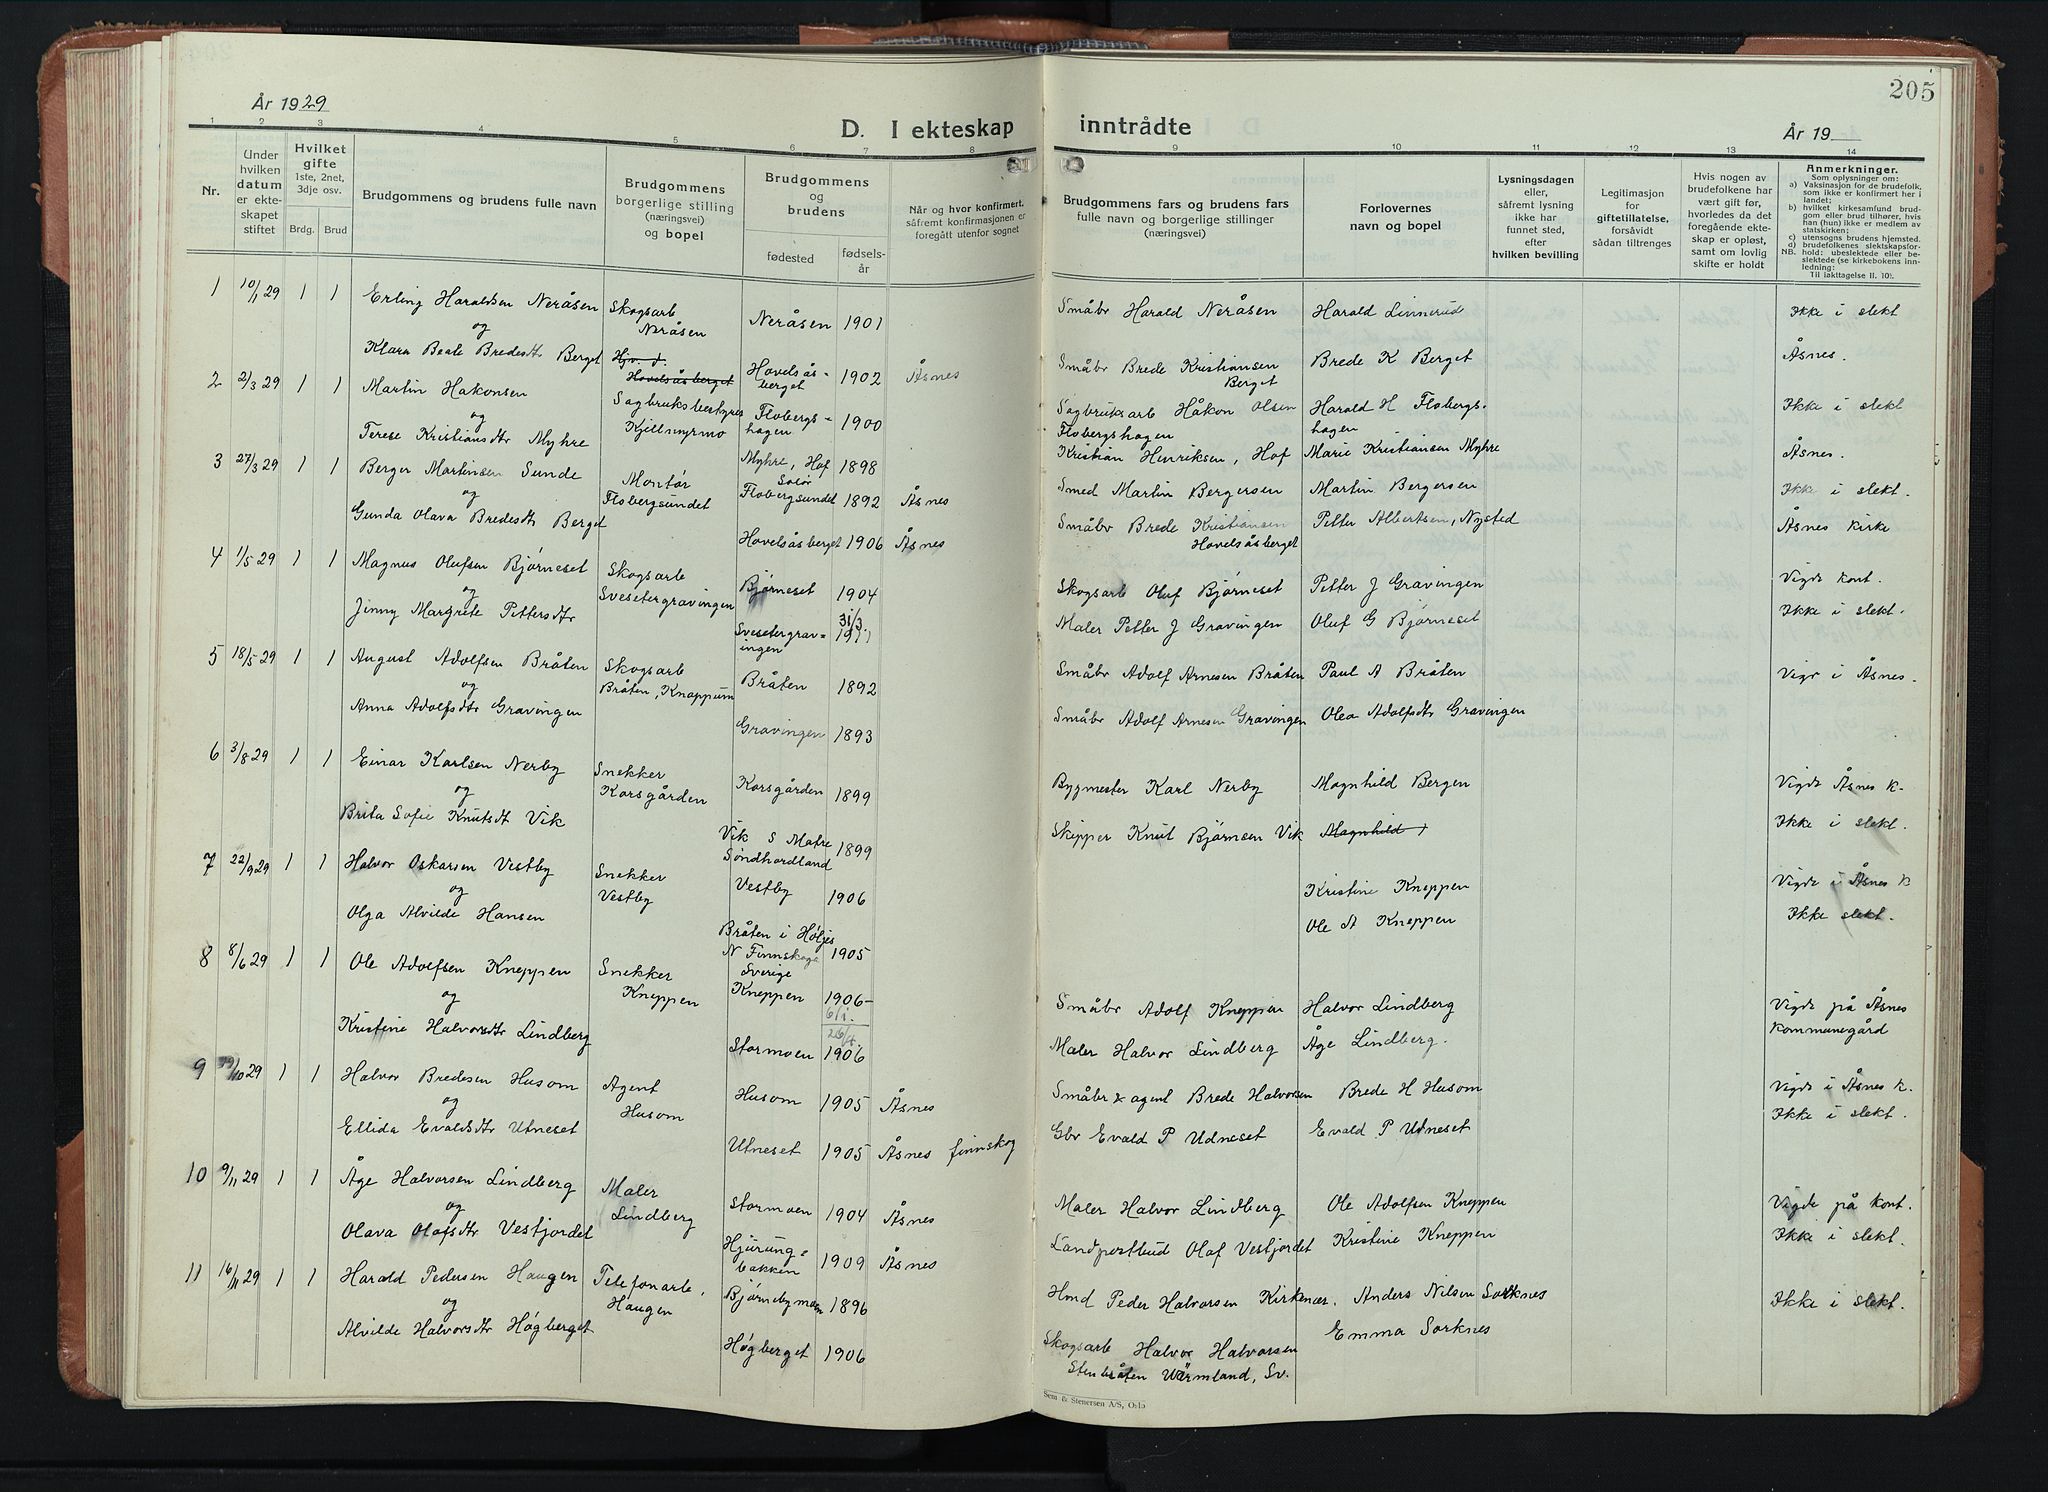 205
År 1929
D. I ekteskap inntrådte
År 19
1 2 3 4 5 6 7 8 9 10 11 12 13 14
Nr.
Under hvilken datum er ekteskapet stiftet
Hvilket gifte 1ste, 2net, 3dje osv.
Brdg. Brud
Brudgommens og brudens fulle navn
Brudgommens borgerlige stilling (næringsvei) og bopel
Brudgommens og brudens
fødested
fødselsår
Når og hvor konfirmert, såfremt konfirmasjonen er foregått utenfor sognet
Brudgommens fars og brudens fars fulle navn og borgerlige stillinger (næringsvei)
Forlovernes navn og bopel
Lysningsdagen eller, såfremt lysning ikke har funnet sted, efter hvilken bevilling
Legitimasjon for giftetillatelse, forsåvidt sådan tiltrenges
Hvis nogen av brudefolkene har vært gift før, hvorledes da det foregående ekteskap er opløst, samt om lovlig skifte er holdt
Anmerkninger.
Som oplysninger om:
a) Vaksinasjon for de brudefolk, som ikke er konfirmert her i landet;
b) hvilket kirkesamfund brudgom eller brud tilhører, hvis han (hun) ikke er medlem av statskirken;
c) utensogns brudens hjemsted.
d) brudefolkenes slektskapsforhold: ubeslektede eller beslektede (se kirkebokens innledning:
NB. Til iakttagelse II. 10).
1 10/1 29 1 1 Erling Haraldsen Neråsen Skogsarb Neråsen Neråsen 1901 Småbr Harald Neråsen Harald Linnerud Ikke i slekt
og
Klara Beate Bredesdtr Berget Hjv. d. Hovelsåsberget Hovelsåsberget 1902 Åsnes Småbr Brede Kristiansen Berget Brede K Berget Åsnes.
2 2/3 29 1 1 Martin Hakonsen Sagbruksbestyrer Kjellmyrmo Flobergshagen 1900 Sagbruksarb Håkon Olsen Flobergshagen Harald H Flobergshagen Ikke i slekt
og
Terese Kristiansdtr Myhre Myhre, Hof Solør 1898 Kristian Henriksen, Hof Marie Kristiansen Myhre Åsnes.
3 27/3 29 1 1 Berger Martinsen Sunde Montør Flobergsundet Flobergsundet 1892 Åsnes Smed Martin Bergersen Martin Bergersen Ikke i slekt.
og
Gunda Olava Bredesdtr Berget Hovelsåsberget 1906 Åsnes Småbr Brede Kristiansen Hovelsåsberget Petter Albertsen, Nysted Åsnes kirke
4 1/5 29 1 1 Magnus Olufsen Bjørneset Skogsarb Svesetergravingen Bjørneset 1904 Skogsarb Oluf Bjørneset Petter J Gravingen Vigde kont.
og
Jinny Margrete Pettersdtr Svesetergravingen 31/3. Maler Petter J Gravingen Oluf G Bjørneset Ikke i slekt.
5 18/5 29 1 1 August Adolfsen Bråten Skogsarb Bråten, Knappum Bråten 1892 Småbr Adolf Arnesen Bråten Paul A Bråten Vigr i Åsnes.
og
Anna Adolfsdtr Gravingen Gravingen 1893 Småbr Adolf Arnesen Gravingen Olea Adolfsdtr Gravingen
6 3/8 29 1 1 Einar Karlsen Nerby Snekker Korsgården Korsgården 1899 Bygmester Karl Nerby Magnhild Bergen Vigde Åsnes k.
og
Brita Sofie Knutsdt Vik Vik S Matre Søndhordland 1899 Skipper Knut Bjørnsen Vik Magnhild Ikke i slekt.
7 22/9 29 1 1 Halvor Oskarsen Vestby Snekker Vestby Vestby 1906 Kristine Kneppen Vigde i Åsnes K
og
Olga Alvilde Hansen Bråten i Høljes N Finnskoga Sverige 1905 Ole A Kneppen Ikke slekt.
8 8/6 29 1 1 Ole Adolfsen Kneppen Snekker Kneppen Kneppen 1906 6/1. Småbr Adolf Kneppen Halvor Lindberg Vigde på Åsnes kommunegård
og
Kristine Halvorsdtr Lindberg Stormoen 1906 Maler Halvor Lindberg Åge Lindberg.
9 /10 29 1 1 Halvor Bredesen Husom Agent Husom Husom 1905 Åsnes Småbr & agent Brede Halvorsen Brede H Husom Vigde i Åsnes k.
og
Ellida Evaldsdtr Utneset Utneset 1905 Åsnes finnskog Gbr Evald P Udneset Evald P Udneset Ikke i slekt.
10 9/11 29 1 1 Åge Halvorsen Lindberg Maler Lindberg Stormoen 1904 Åsnes Maler Halvor Lindberg Ole Adolfsen Kneppen Vigde på kont.
og
Olava Olafsdtr Vestfjordet Hjurungbakken 1909 Åsnes Landpostbud Olaf Vestfjordet Kristine Kneppen Ikke i slekt.
11 16/11 29 1 1 Harald Pedersen Haugen Telefonarb. Haugen Bjørnebymoen 1896 Hmd Peder Halvorsen Kirkenær. Anders Nilsen Sorknes Ikke i slekt.
og
Alvilde Halvorsdtr Høgberget Høgberget 1906 Skogsarb Halvor Halvorsen Stenbråten Wärmland, Sv. Emma Sorknes
Sem & Stenersen A/S, Oslo